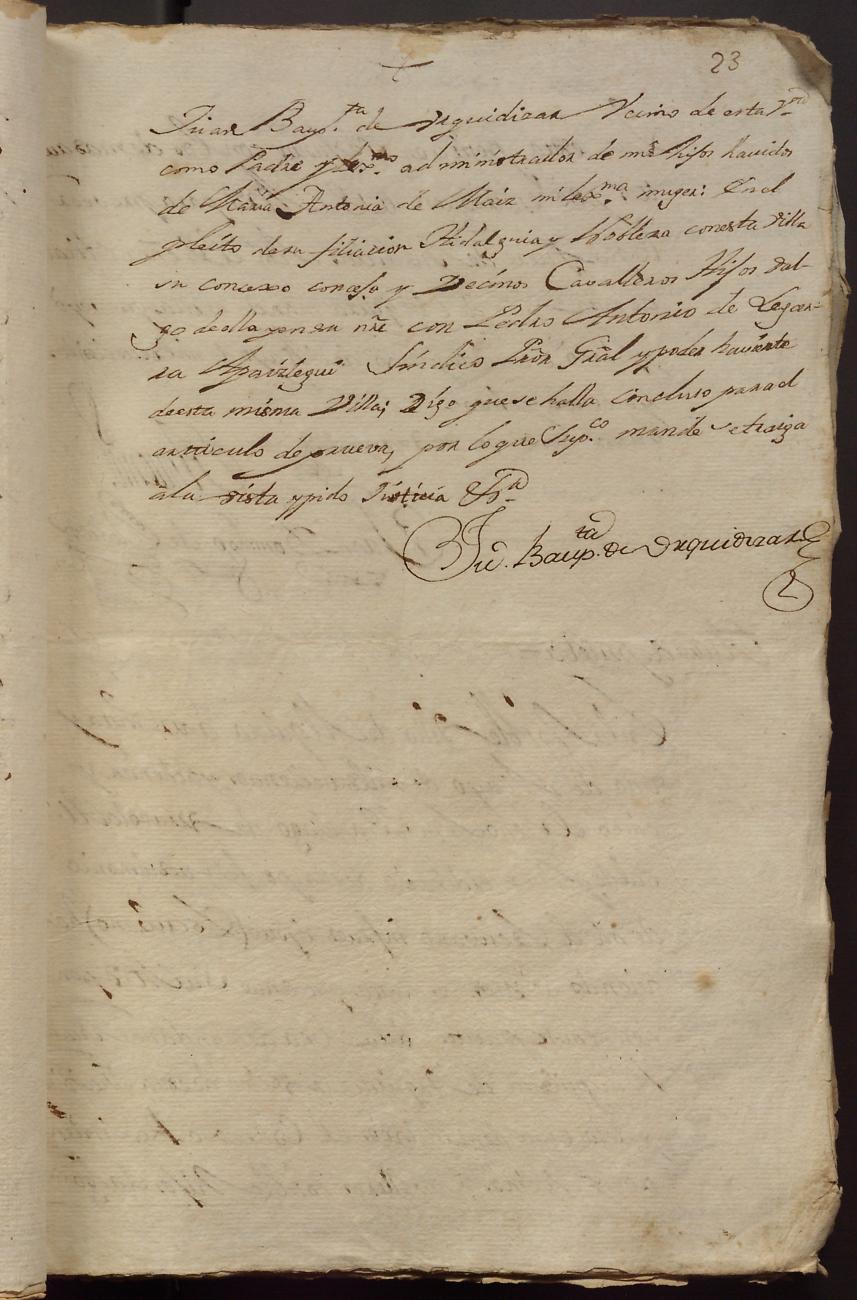 23
Juan Baup.ta de Vrquidizar Vecino de esta V.a
como Padre y lex.mo administrador de mis hijos havidos
de Maria Antonia de Maiz mi lex.ma muger: En el
pleito de su filiacion Hidalguia y Nobleza con esta Villa
su concexo conosejo y Vecinos Cavalleros Hijos dal-
go de ella y en su nre con Pedro Antonio de Legar-
ra Aparizegui Sindico Pror Gral y poder haviente
de esta misma Villa; Digo que se halla concluso para el
articulo de prueva, por lo que Sup.co mande se traiga
a la vista y pido Justicia &.a
Ju. Baup.ta de Vrquidizar